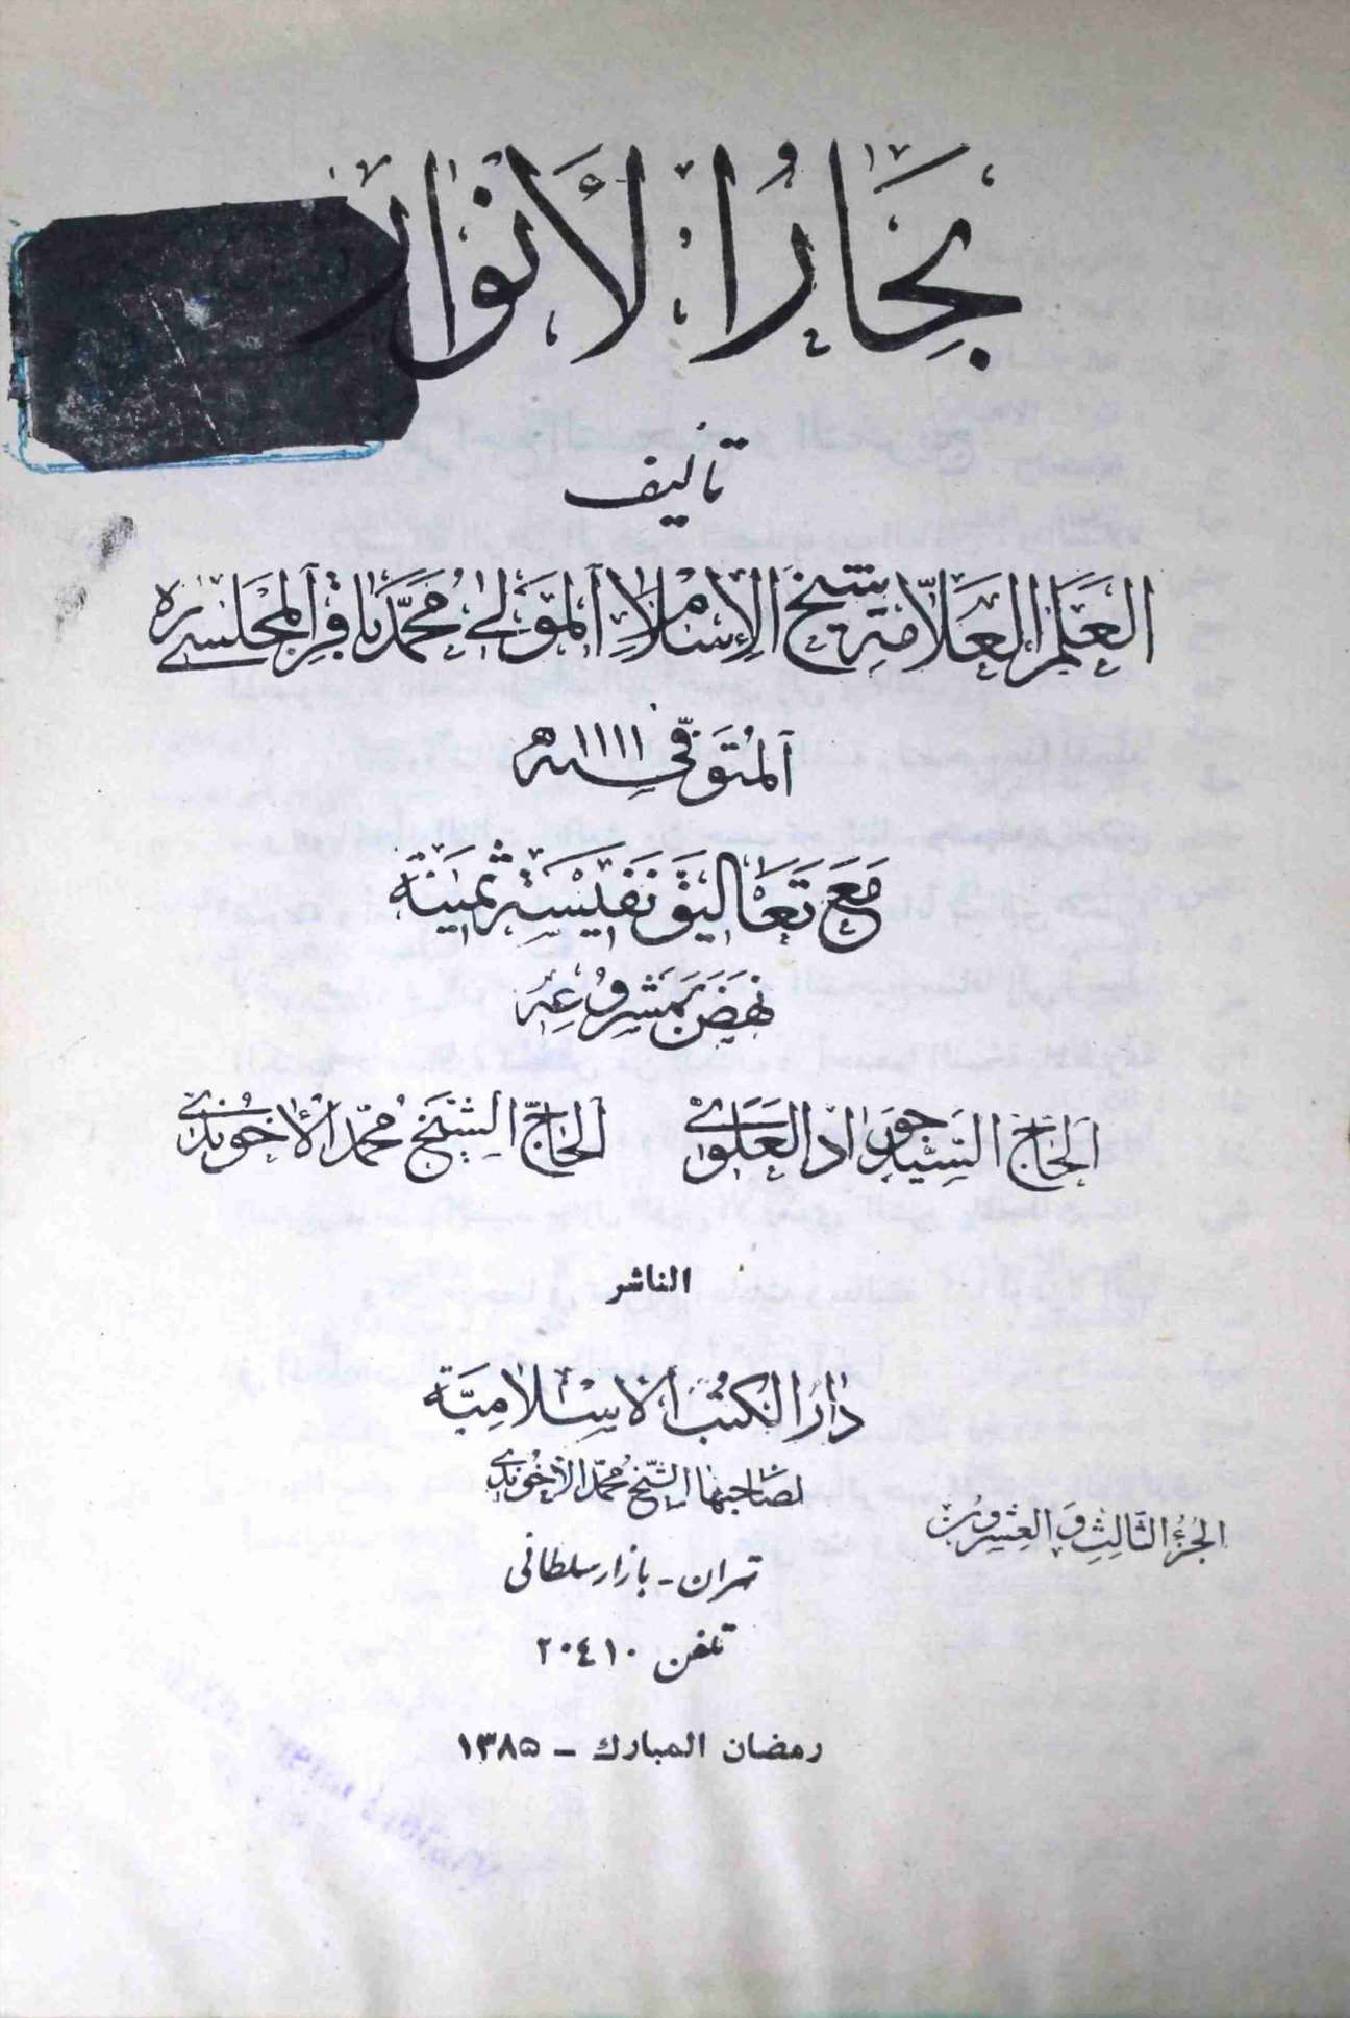 بِحَارُ الْأَنْوار
تأليف
العَلَم العَلّامة شيخ الإسلام المَولى مُحَمَّد بَاقِر المجلسي ره
المُتَوفّى سنه ١١١١ ه
مَعَ تَعَاليق نَفيسَة ثمينَة
نهَضَ بمَشروعِهِ
الحَاج السَّيد جَواد العَلَوي الحَاجّ الشّيخ مُحَمّد الآخوندي
الناشر
دَارُ الكتب الاسْلامِيَّة
لصَاحِبها الشّيخ مُحمّد الآخُوندي
الجُزءُ الثَّالِث وَ العِشرون
تهران - بازار سلطانی
تلفن ٢٠٤١٠
رمضان المبارك - ١٣٨٥